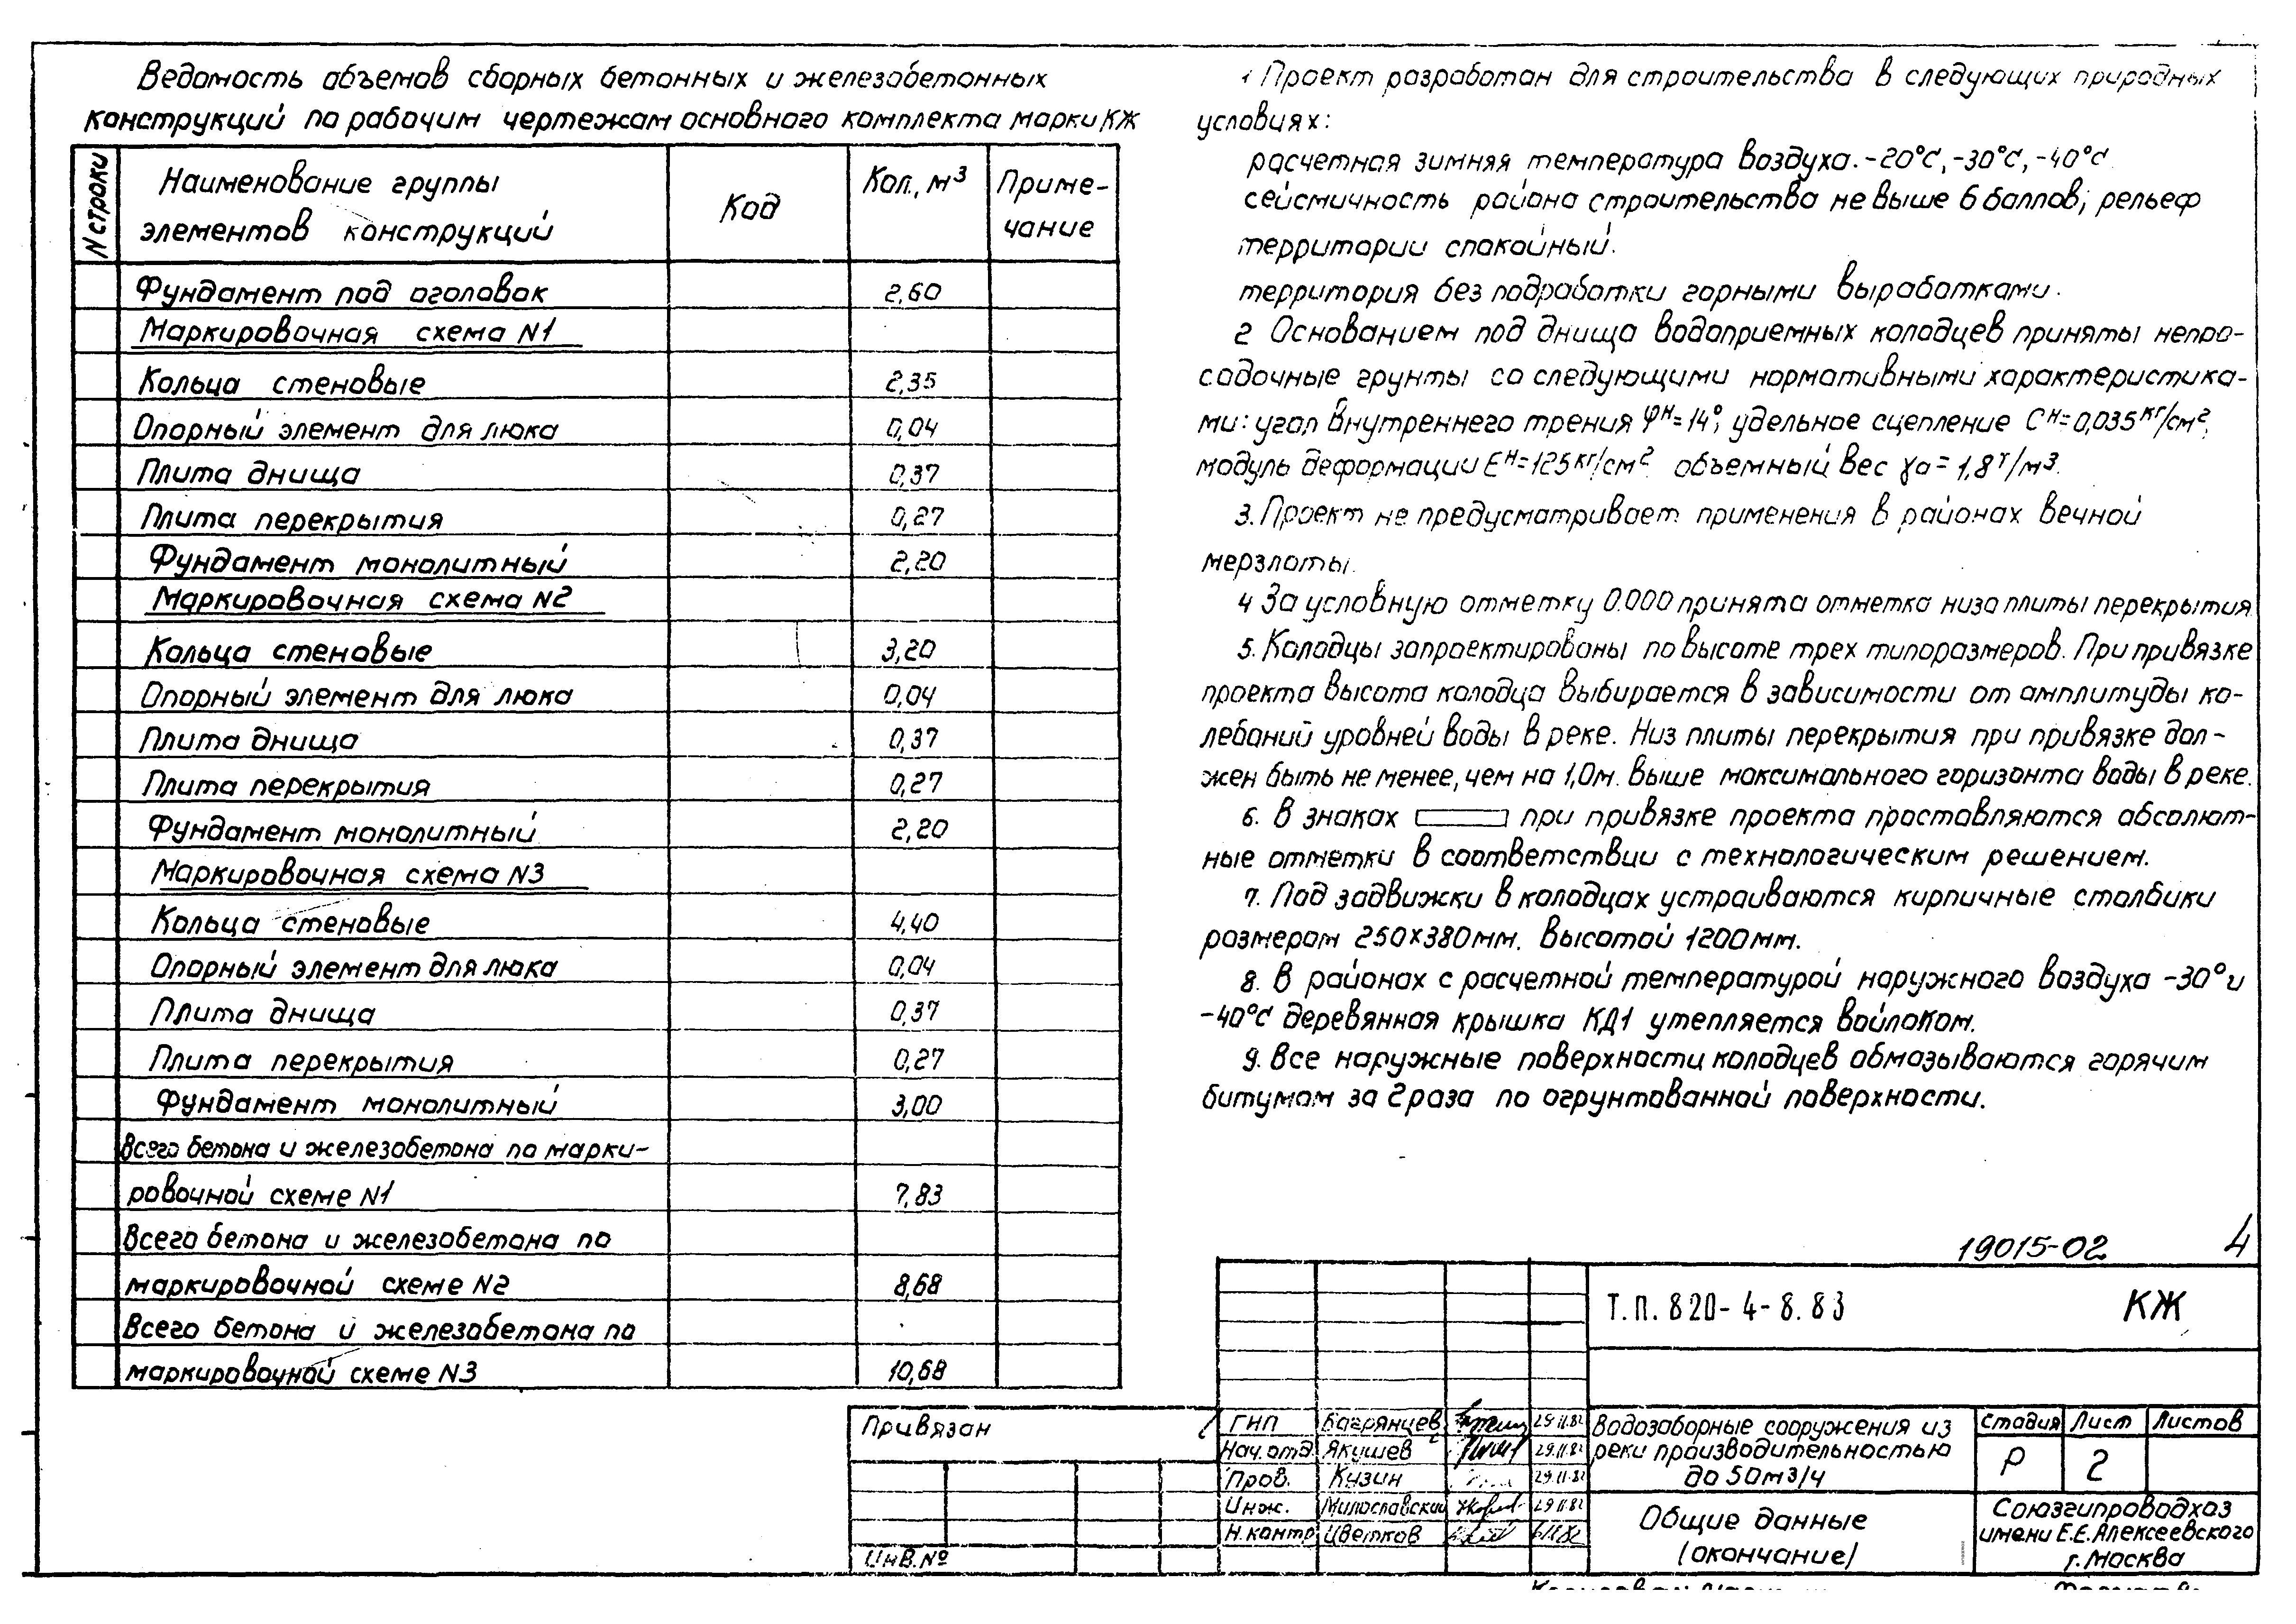 Ведомость объемов сборных бетонных и железобетонных
конструкций по рабочим чертежам основного комплекта марки КЖ
N строки
Наименование группы
элементов конструкций
Код
Кол., м³
Приме-
чание
Фундамент под оголовок 2,60
Маркировочная схема N1
Кольца стеновые 2,35
Опорный элемент для люка 0,04
Плита днища 0,37
Плита перекрытия 0,27
Фундамент монолитный 2,20
Маркировочная схема N2
Кольца стеновые 3,20
Опорный элемент для люка 0,04
Плита днища 0,37
Плита перекрытия 0,27
Фундамент монолитный 2,20
Маркировочная схема N3
Кольца стеновые 4,40
Опорный элемент для люка 0,04
Плита днища 0,37
Плита перекрытия 0,27
Фундамент монолитный 3,00
Всего бетона и железобетона по марки-
ровочной схеме N1 7,83
Всего бетона и железобетона по
маркировочной схеме N2 8,68
Всего бетона и железобетона по
маркировочной схеме N3 10,68
1 Проект разработан для строительства в следующих природных
условиях:
расчетная зимняя температура воздуха. -20°С, -30°С, -40°С
сейсмичность района строительства не выше 6 баллов; рельеф
территории спокойный.
территория без подработки горными выработками.
2 Основанием под днища водоприемных колодцев приняты непро-
садочные грунты со следующими нормативными характеристика-
ми: угол внутреннего трения φᴴ=14°, удельное сцепление Сᴴ=0,035 кг/см²,
модуль деформации Eᴴ=125 кг/см² объемный вес γо=1,8 т/м³.
3. Проект не предусматривает применения в районах вечной
мерзлоты.
4 За условную отметку 0.000 принята отметка низа плиты перекрытия
5. Колодцы запроектированы по высоте трех типоразмеров. При привязке
проекта высота колодца выбирается в зависимости от амплитуды ко-
лебаний уровней воды в реке. Низ плиты перекрытия при привязке дол-
жен быть не менее, чем на 1,0м. выше максимального горизонта воды в реке.
6. В знаках при привязке проекта проставляются абсолют-
ные отметки в соответствии с технологическим решением.
7. Под задвижки в колодцах устраиваются кирпичные столбики
размером 250×380мм. высотой 1200мм.
8. В районах с расчетной температурой наружного воздуха -30° и
-40°С деревянная крышка КД1 утепляется войлоком.
9. Все наружные поверхности колодцев обмазываются горячим
битумом за 2 раза по огрунтованной поверхности.
19015-02 4
Т.П. 820-4-8.83 КЖ
Привязан
Инв. №
ГИП Багрянцев 29.11.82
Нач. отд. Якушев 29.11.82
Пров. Кузин 29.11.82
Инж. Милославский 29.11.82
Н.контр Цветков
Водозаборные сооружения из
реки производительностью
до 50м3/ч
Стадия Лист Листов
Р 2
Общие данные
(окончание)
Союзгипроводхоз
имени Е.Е.Алексеевского
г. Москва